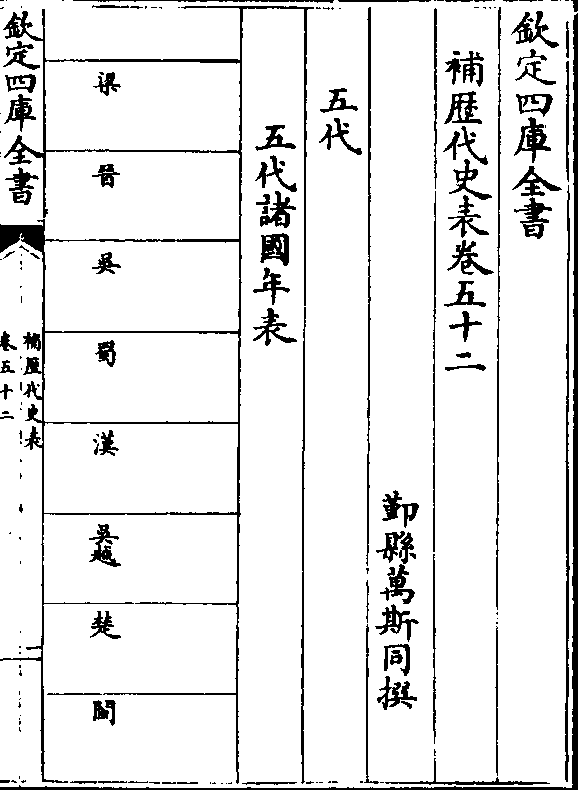 欽定四庫全書
補歴代史表卷五十二
鄞縣萬斯同撰
五代
五代諸國年表
梁
晉
吳
蜀
漢
吳越
楚
閩
欽定四庫全書
補歴代史表
卷五十二
一